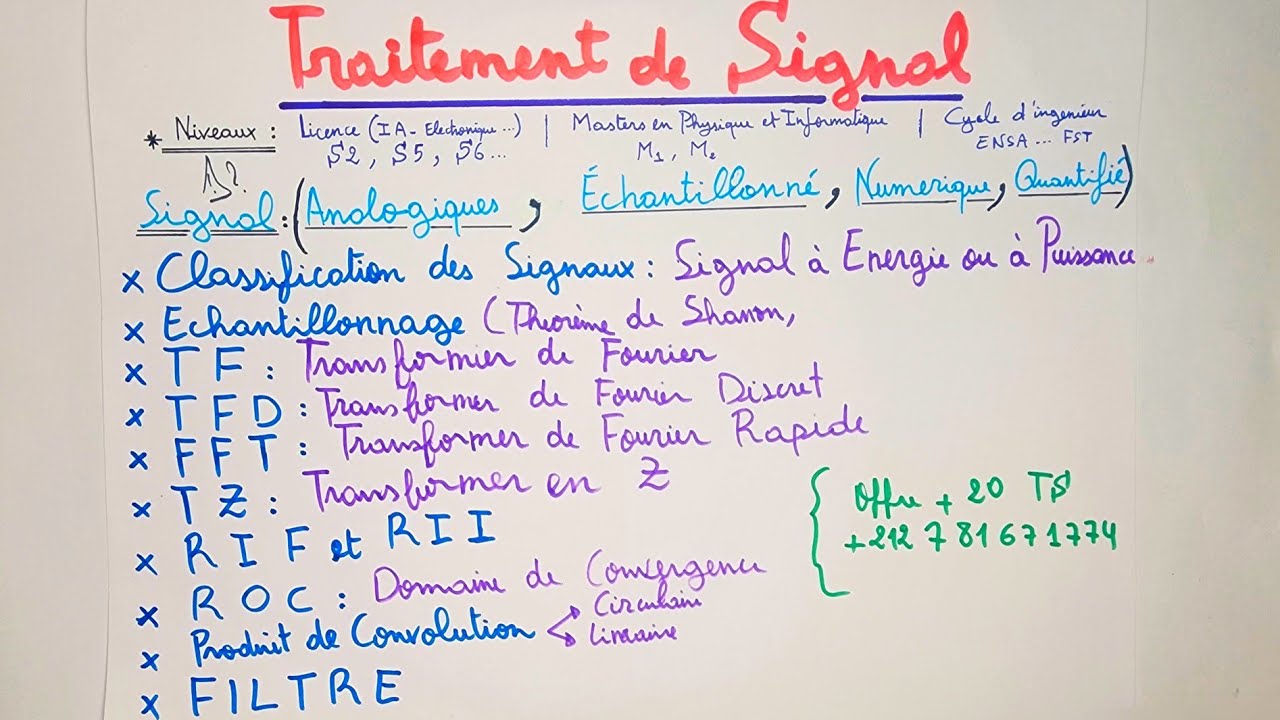 Traitement de Signal
* Niveaux : Licence (IA - Electronique ...) | Masters en Physique et Informatique | Cycle d'ingenieur
S2 , S5 , S6 ... M1 , M2 ENSA ... FST
Signal : (Analogiques , Échantillonné , Numerique , Quantifié)
x Classification des Signaux : Signal à Energie ou à Puissance
x Echantillonnage (Theorème de Shanon,
x TF : Transformer de Fourier
x TFD : Transformer de Fourier Discret
x FFT : Transformer de Fourier Rapide
x TZ : Transformer en Z
x RIF et RII
x ROC : Domaine de Convergence
x Produit de Convolution < Circulaire
Lineaire
x FILTRE
{ Offre + 20 TS
+212 7 81 67 1774